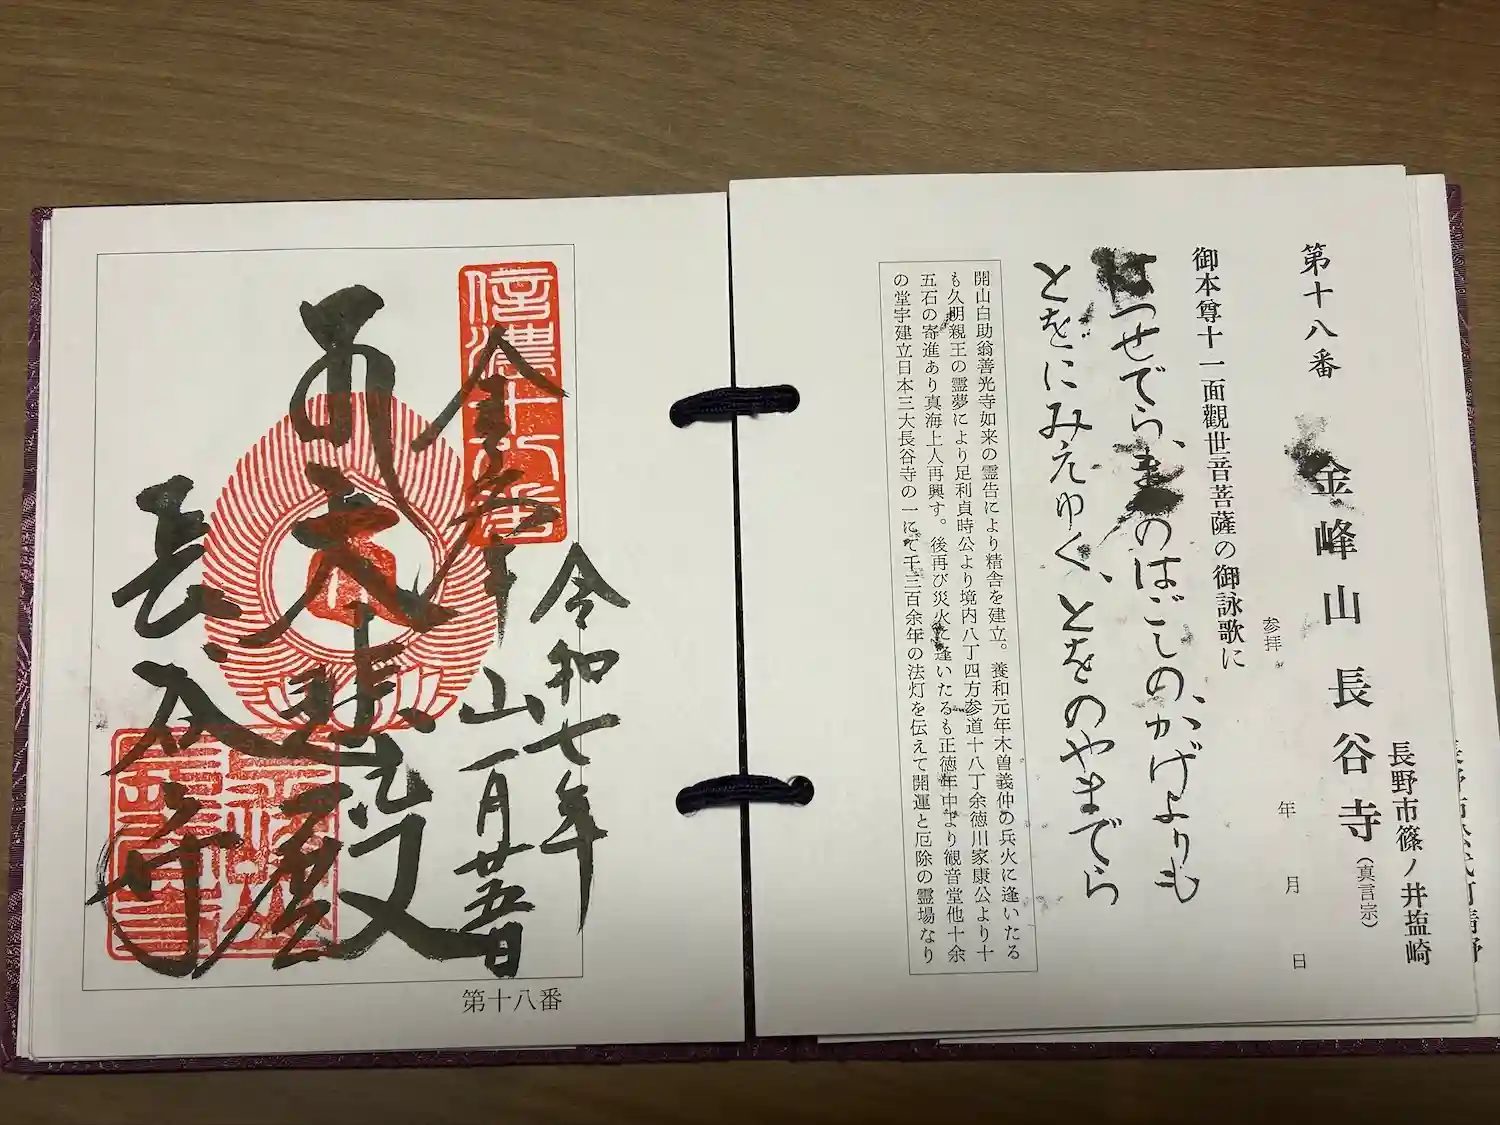 第十八番
金峰山長谷寺(真言宗)
長野市篠ノ井塩崎
参拝 年 月 日
御本尊十一面觀世音菩薩の御詠歌に
はつせでら、まつのはごしの、かげよりも
とをにみえゆく、とをのやまでら
開山白助翁善光寺如来の霊告により精舎を建立。養和元年木曽義仲の兵火に逢いたる
も久明親王の霊夢により足利貞時公より境内八丁四方参道十八丁余徳川家康公より十
五石の寄進あり真海上人再興す。後再び災火に逢いたるも正徳年中より観音堂他十余
の堂宇建立日本三大長谷寺の一にて千三百余年の法灯を伝えて開運と厄除の霊場なり
信濃十八番
令和七年
一月廿五日
金峯山
大悲殿
長谷寺
第十八番